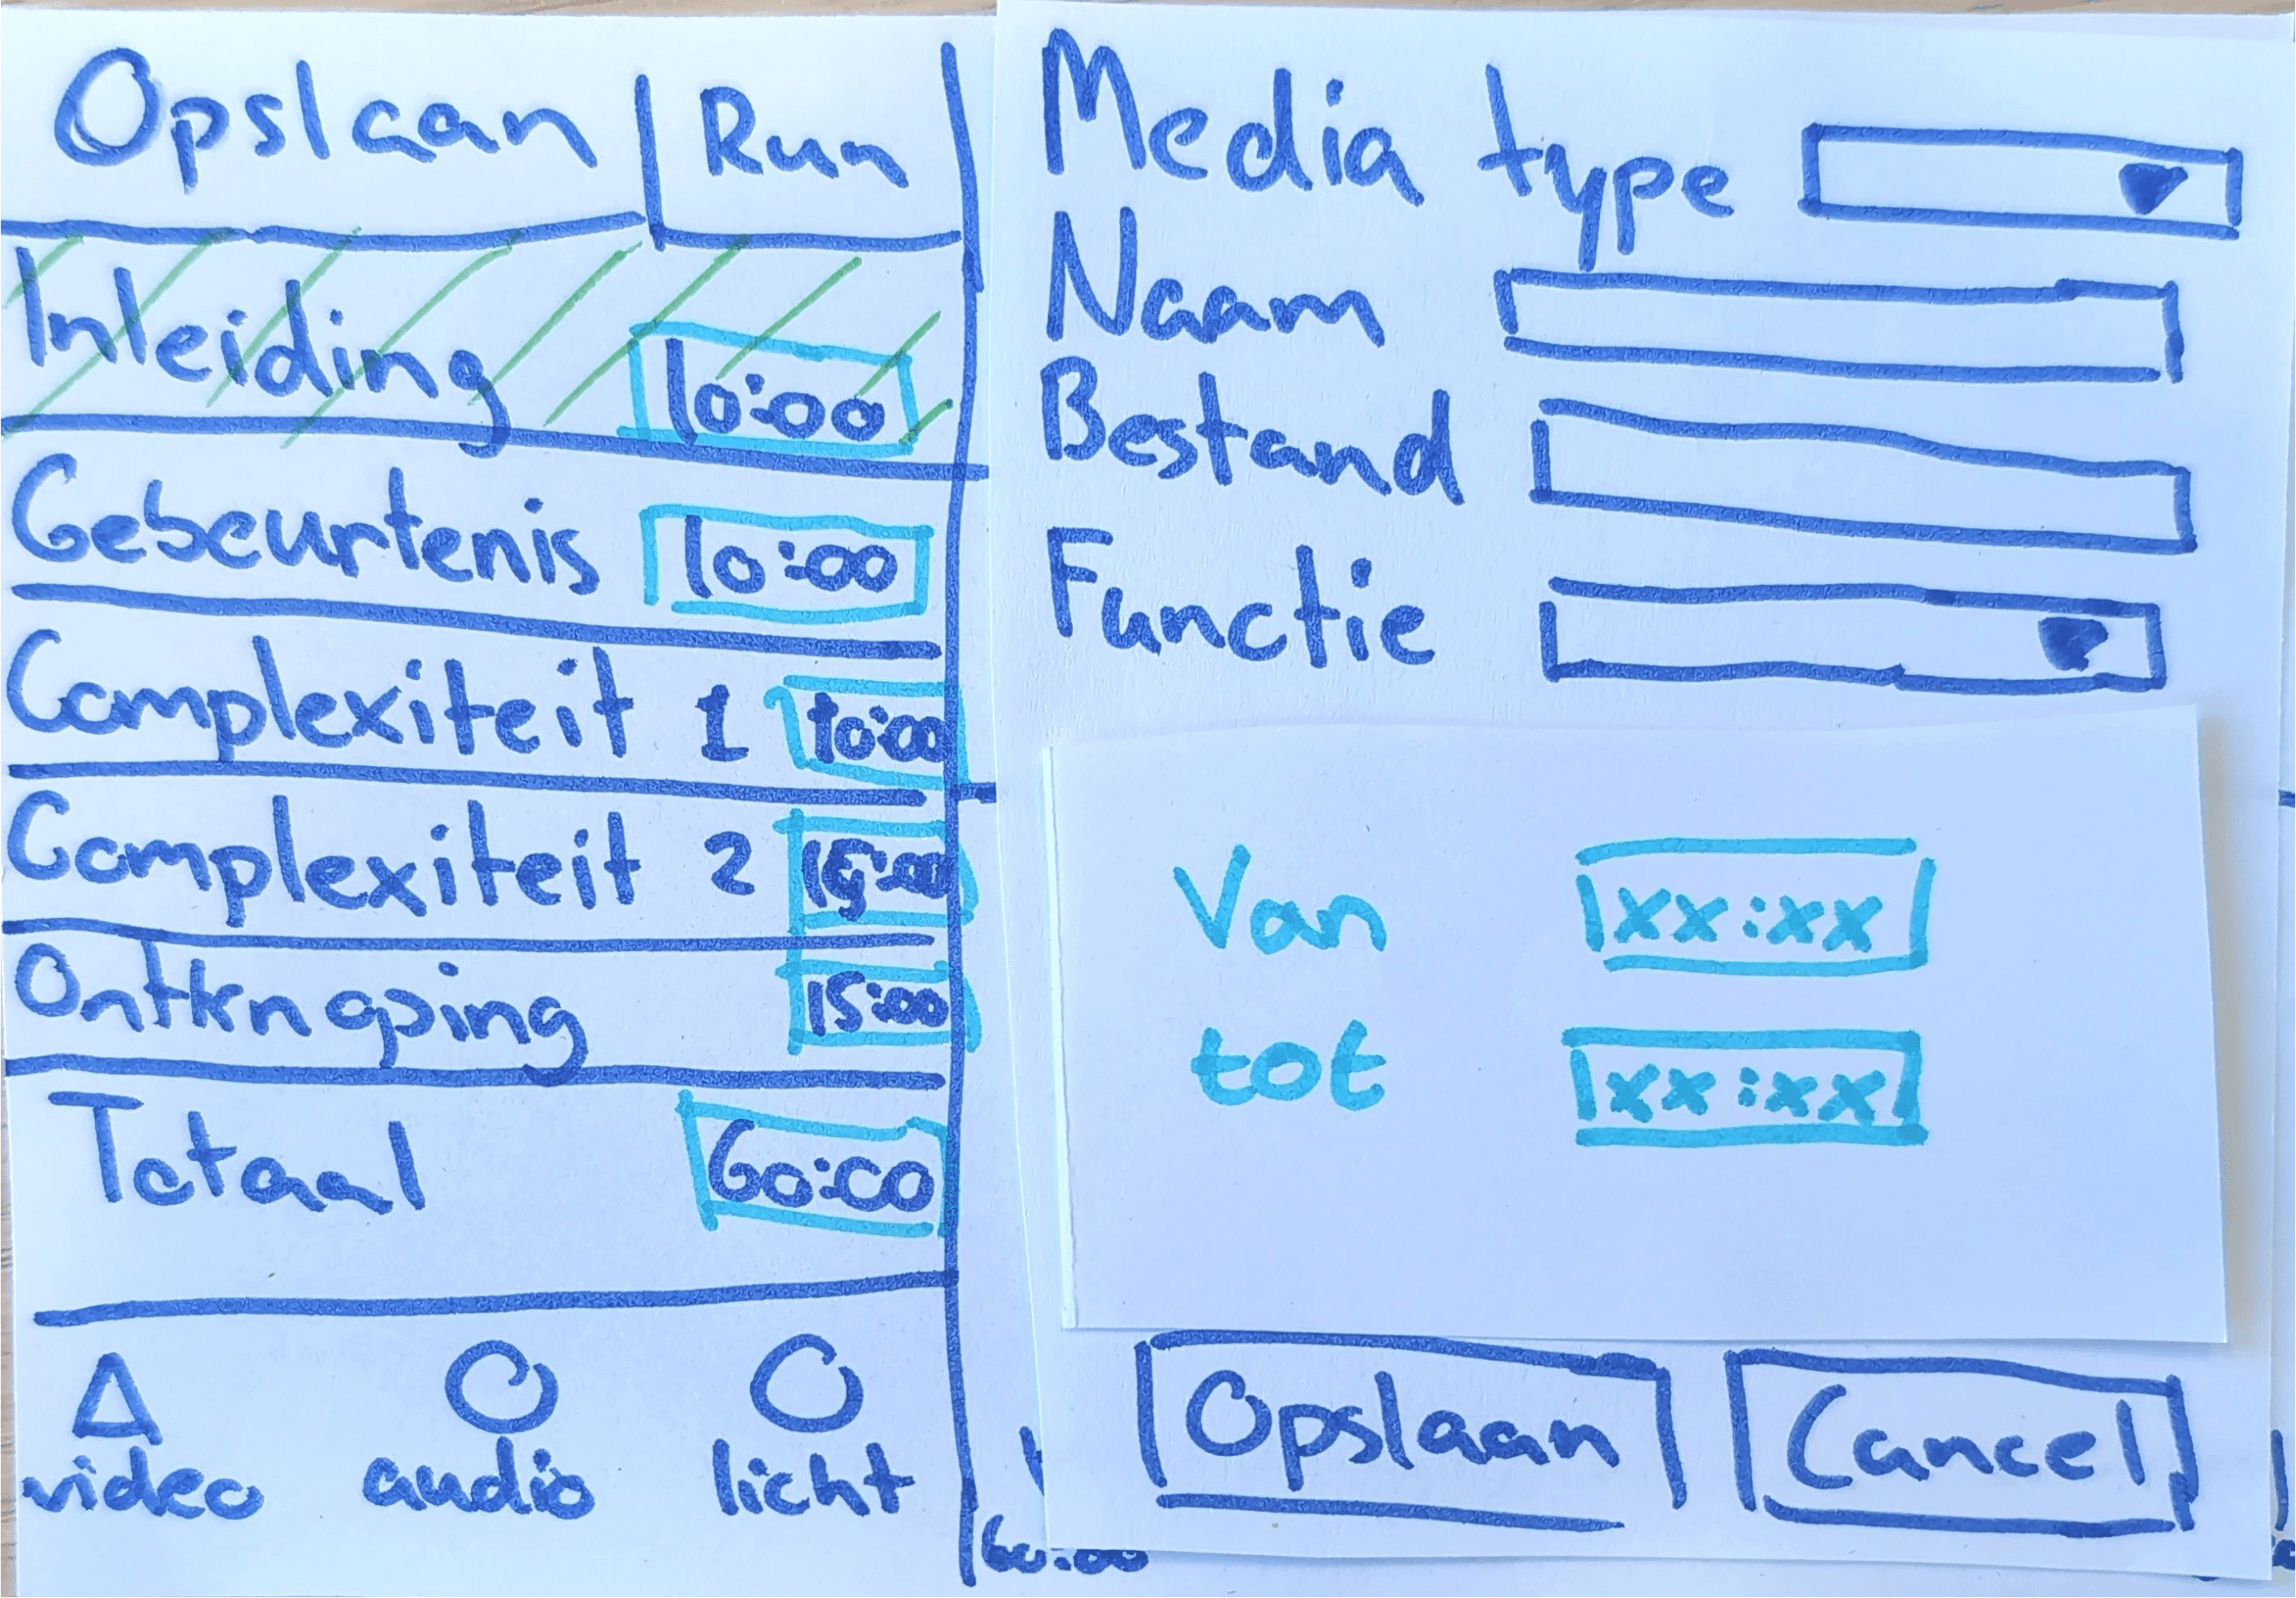 Opslaan Run
Inleiding 10:00
Gebeurtenis 10:00
Complexiteit 1 10:00
Complexiteit 2 15:00
Ontknoping 15:00
Totaal 60:00
video audio licht
60:00
Media type
Naam
Bestand
Functie
Van xx:xx
tot xx:xx
Opslaan Cancel